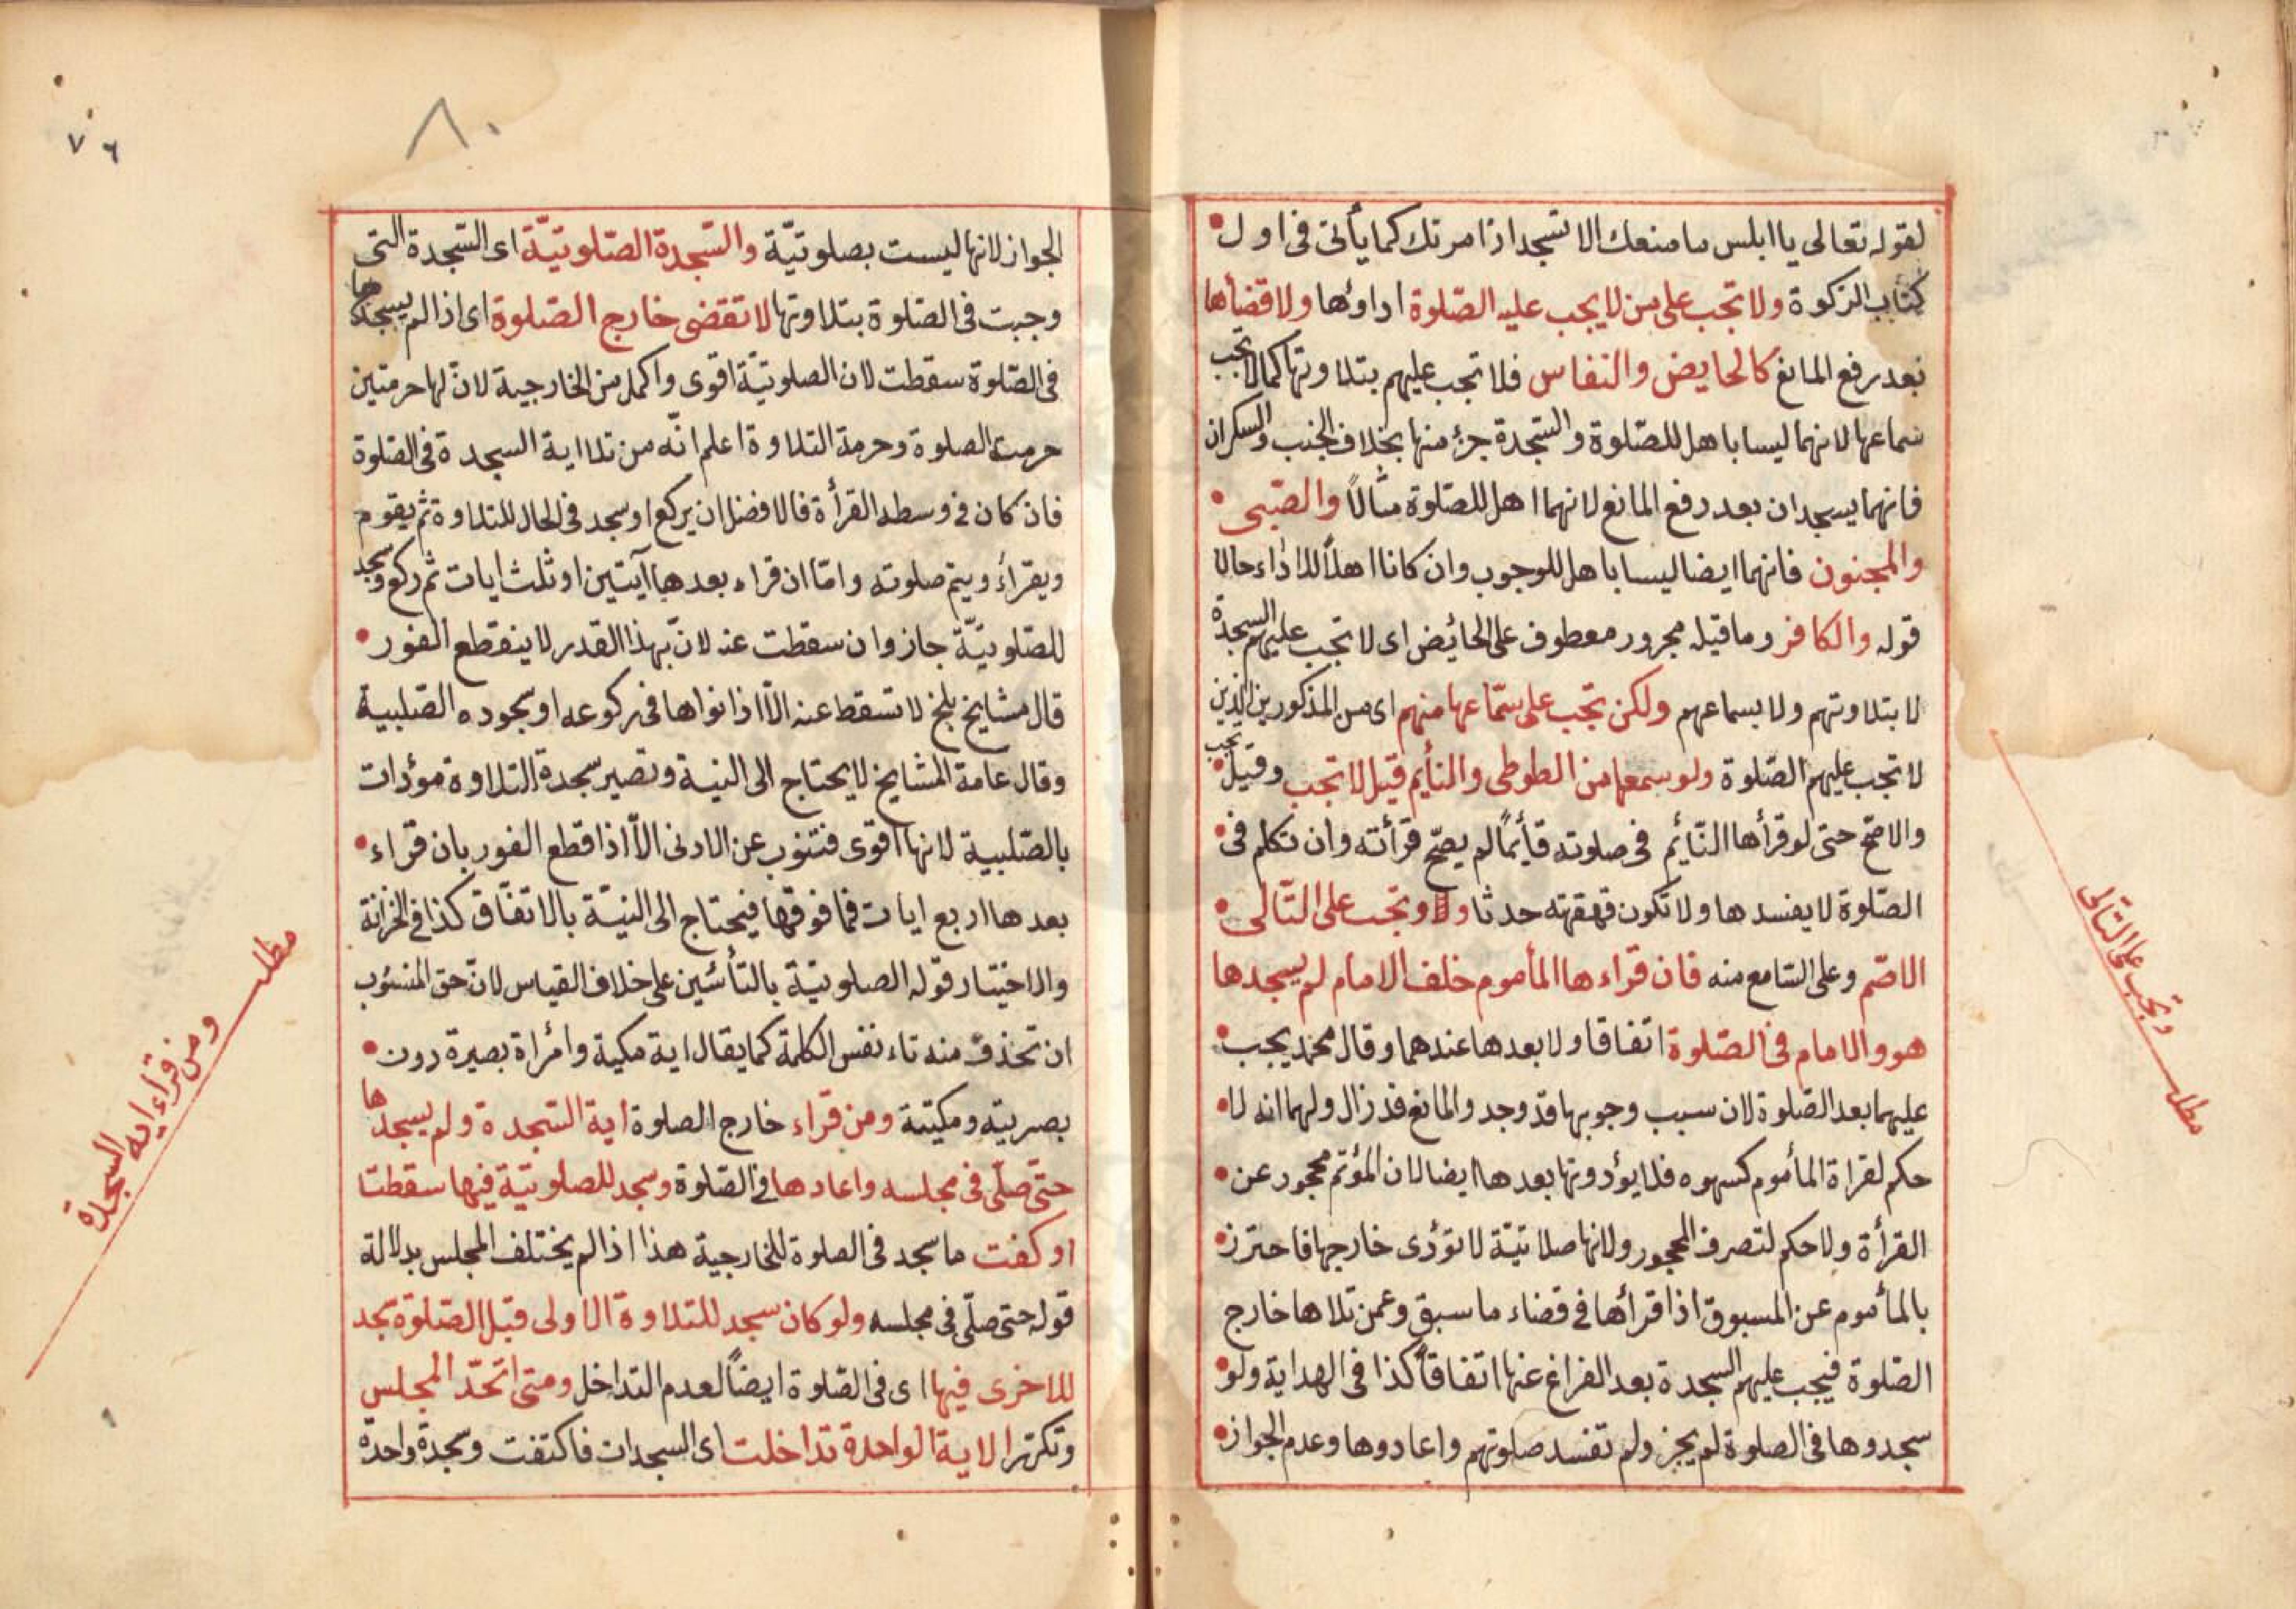 لقوله تعالى يا ابلس ما منعك الا تسجد اذا مرتك كما يأتى فى اول
كتاب الزكوة ولا تجب على من لا يجب عليه الصّلوة اداوها ولا قضأها
بعد رفع المانع كالحايض والنفاس فلا تجب عليهم بتلاوتها كما لا تجب
سماعها لانهما ليسا باهل للصّلوة والسّجدة جزء منها بخلاف الجنب والسكران
فانهما يسجدان بعد رفع المانع لانهما اهل للصّلوة مثالاً والصّبى
والمجنون فانهما ايضا ليسا باهل للوجوب وان كانا اهلاً للاداء حالا
قوله والكافر وما قبله مجرور معطوف على الحائض اى لا تجب عليهم السجدة
لا بتلاوتهم ولا بسماعهم ولكن تجب على سمّاعها منهم اى من المذكورين الذين
لا تجب عليهم الصّلوة ولو سمعها من الطوطى والنأيم قيل لا تجب وقيل تجب
والاصّح حتى لو قرأها النّائم فى صلوته قأيمًا لم يصحّ قرأته وان تكلم فى
الصّلوة لا يفسدها ولا تكون قهقهته حدثا وتجب على التّالى
الاصّم وعلى السّامع منه فان قراءها المأموم خلف الامام لم يسجدها
هو والامام فى الصّلوة اتفاقا ولا بعدها عندهما وقال محمّد يجب
عليهما بعد الصّلوة لان سبب وجوبها قد وجد والمانع قد زال ولهما انه لا
حكم لقراة المأموم كسهوه فلا يؤدونها بعدها ايضا لان المؤتم محجور عن
القرأة ولا حكم لتصرف المحجور ولانها صلاتيّة لا تؤدى خارجها فاحترز
بالمأموم عن المسبوق اذا قرأها فى قضاء ما سبق وعمن تلاها خارج
الصّلوة فيجب عليهم السجدة بعد الفراغ عنها اتفاقاً كذا فى الهداية ولو
سجدوها فى الصلوة لم يجز ولم تفسد صلوتهم واعادوها وعدم الجواز
مطلب وتجب على التّالى
٧٦
٨٠
الجواز لانها ليست بصلوتيّة والسّجدة الصّلوتيّة اى السّجدة التى
وجبت فى الصّلوة بتلاوتها لا تقضى خارج الصّلوة اى اذا لم يسجدها
فى الصّلوة سقطت لان الصلوتيّة اقوى واكمل من الخارجية لانّ لها حرمتين
حرمة الصلوة وحرمة التلاوة اعلم انّه من تلا اية السجدة فى الصّلوة
فان كان فى وسط القرأة فالافضل ان يركع او سجد فى الحال للتلاوة ثم يقوم
ويقرأء ويتم صلوته وامّا ان قراء بعدها آيتين او ثلث ايات ثم ركع وسجد
للصّلوتيّة جاز وان سقطت عنه لانّ بهذا القدر لا ينقطع الفور
قال مشايخ بلخ لا تسقط عنه الاّ اذا نواها فى ركوعه او سجوده الصّلبية
وقال عامة المشايخ لا يحتاج الى النية وتصير سجدة التلاوة مؤدات
بالصّلبية لانها اقوى فتنوب عن الادنى الاّ اذا قطع الفور بان قراء
بعدها اربع ايات فما فوقها فيحتاج الى النيّة بالاتفّاق كذا فى الخزانة
والاختيار قوله الصلوتيّة بالتأئين على خلاف القياس لانّ حق المنسوب
ان تحذف منه تاء نفس الكلمة كما يقال اية مكية وامٔراة بصيرة دون
بصريته ومكيتة ومن قراء خارج الصلوة اية السّجدة ولم يسجدها
حتّى صلّى فى مجلسه واعادها فى الصّلوة وسجد للصلوتيّة فيها سقطتا
او كفت ما سجد فى الصلوة للخارجية هذا اذا لم يختلف المجلس بدلالة
قوله حتى صلّى فى مجلسه ولو كان سجد للتلاوة الاولى قبل الصّلوة سجد
للاخرى فيها اى فى الصّلوة ايضاً لعدم التداخل ومتى اتحّد المجلس
وتكرّر الاية الواحدة تداخلت اى السجدات فاكتفت وسجدة واحدة
مطلب ومن قراء اية السجدة